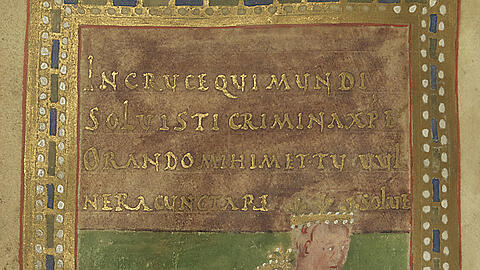 IN CRUCE QUI MUNDI
SOLUISTI CRIMINA XPE
ORANDO MIHIMET TU UUL
NERA CUNCTA RE SOLUE